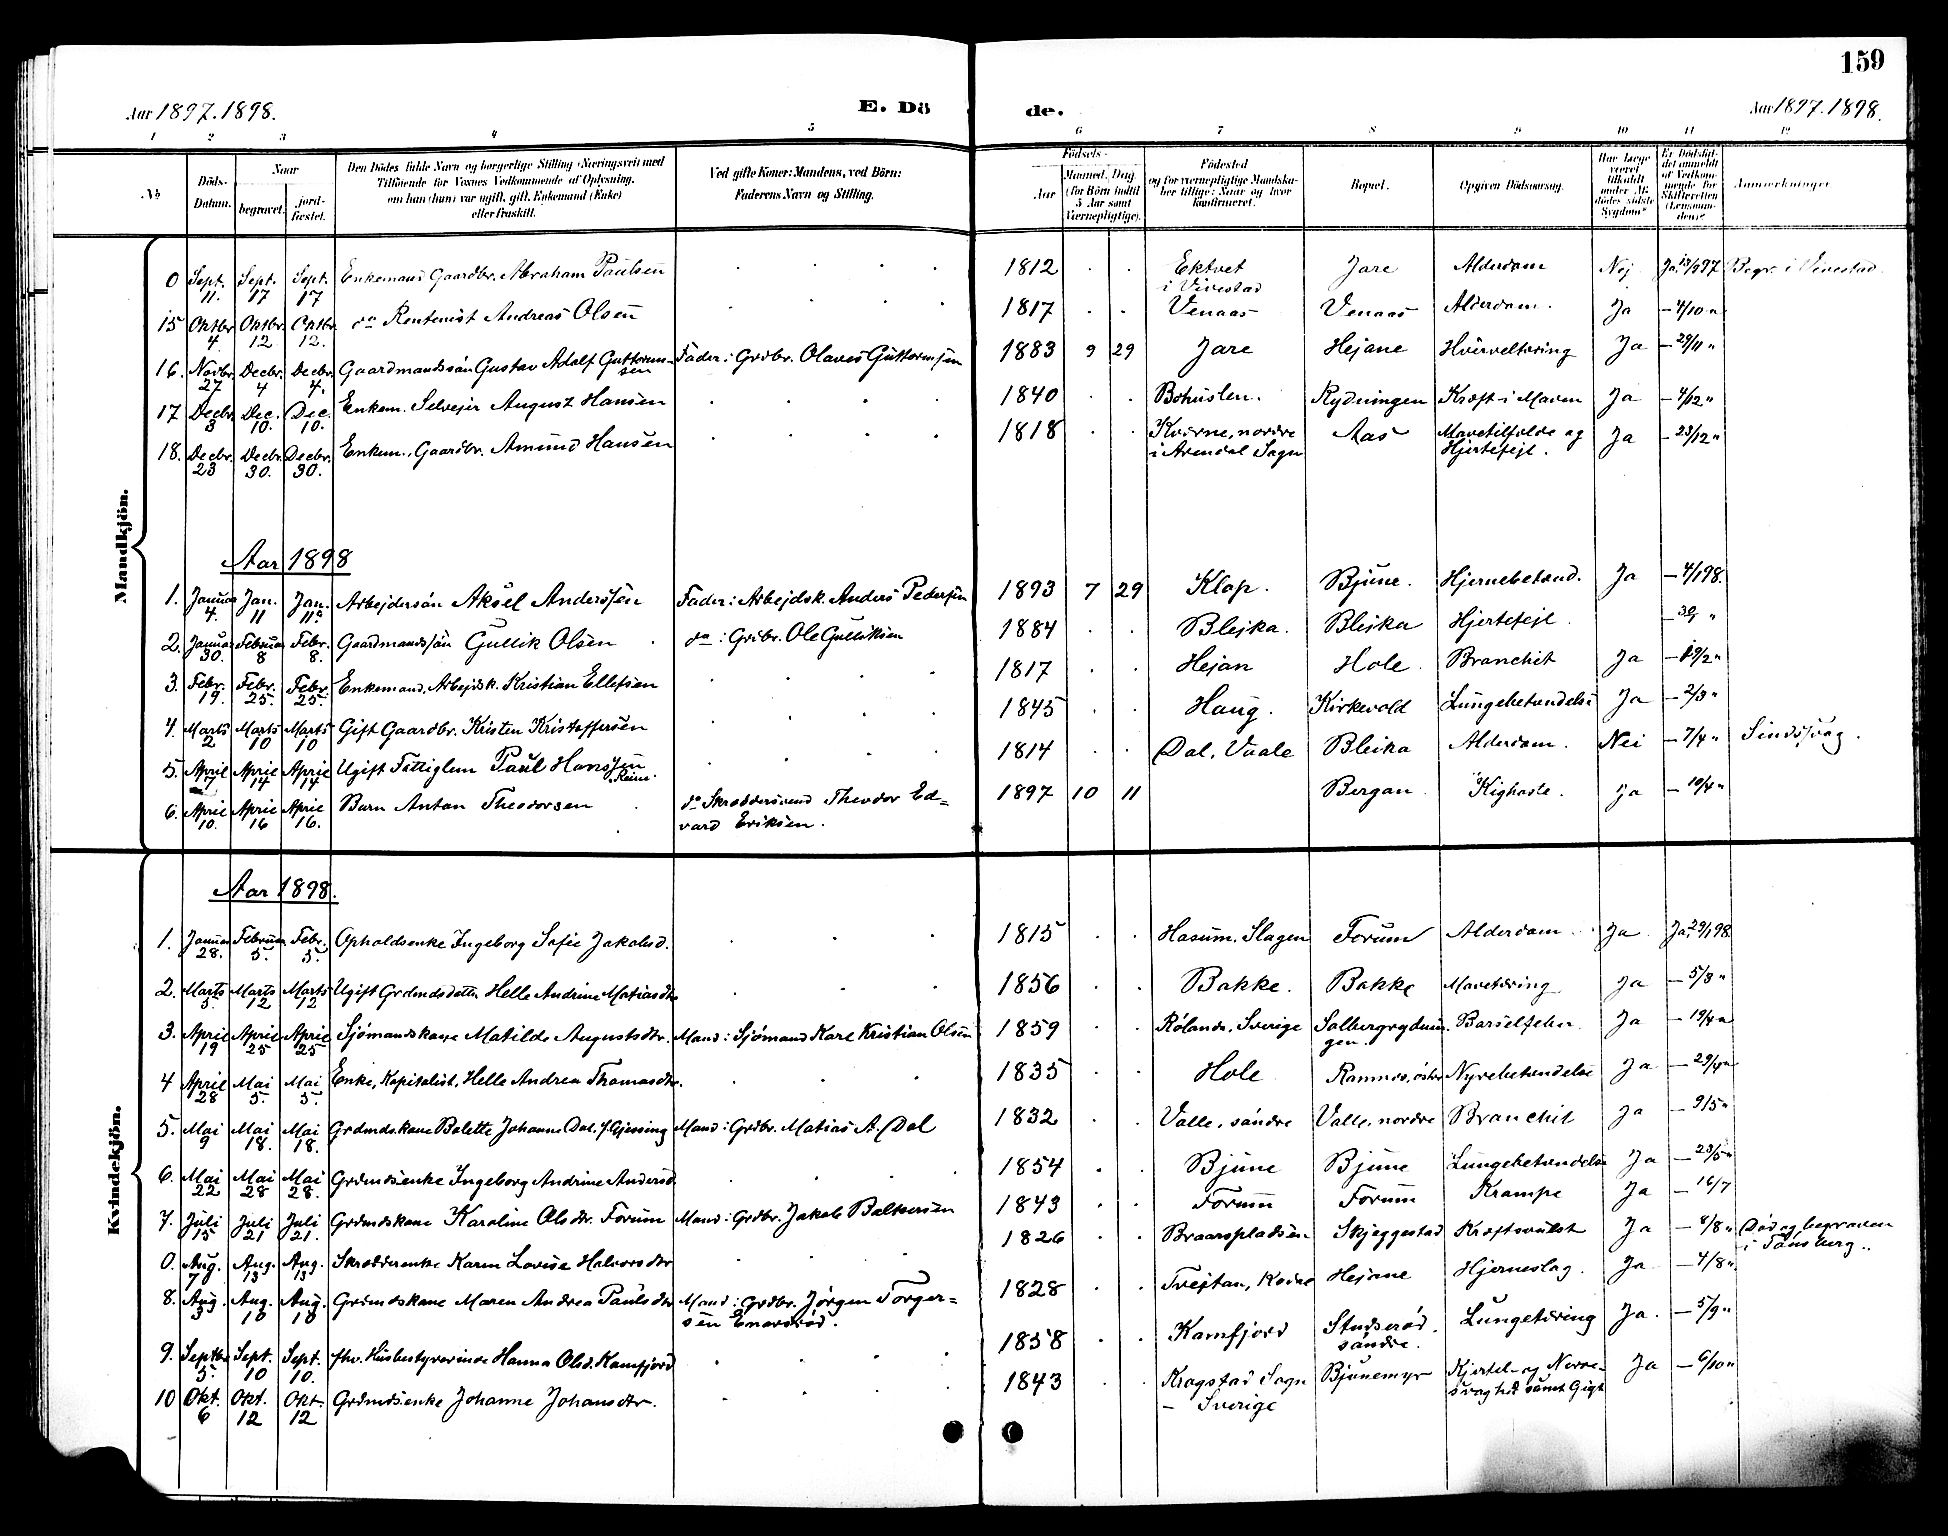 159
Aar 1897.1898. E. Dö de. Aar 1897.1898.
1 2 3 4 5 6 7 8 9 10 11 12
No Döds-Datum. Naar begravet. jordfæstet. Den Dödes fulde Navn og borgerlige Stilling (Næringsvei) med Tilföiende for Voxnes Vedkommende af Oplysning, om han (hun) var ugift, gift, Enkemand (Enke) eller fraskilt. Ved gifte Koner: Mandens, ved Börn: Faderens Navn og Stilling. Födsels- Aar Maaned. Dag. (for Börn indtil 5 Aar samt Værnepligtige). Födested og for værnepligtige Mandskaber tillige: Naar og hvor konfirmeret. Bopæl. Opgiven Dödsaarsag. Har Læge været tilkaldt under Afdödes sidste Sygdom? Er Dödsfaldet anmeldt af Vedkommende for Skifteretten (Lensmanden)? Anmærkninger
Mandkjön.
0 Sept. 11. Sept. 17 Sept. 17 Enkemand Gaardbr. Abraham Paulsen 1812 Ektvet i Vivestad Jare Alderdom Nej Ja 13/9 97 Begr. i Vivestad
15 Oktbr 4 Oktbr 12 Oktbr. 12. do Rentenist Andreas Olsen 1817 Venaas Venaas Alderdom. Ja — 4/10 "
16. Novbr. 27 Decbr. 4 Decbr. 4. Gaardmandssön Gustav Adolf Guttormsen Fader: Grdbr. Olaves Guttormsen 1883 9 29 Jare Hejane Hvirveltæring Ja — 29/11 "
17 Decbr. 3 Dec. 10. Dec. 10. Enkem. Selvejer August Hansen 1840 Bohuslen. Rydningen Kræft i Maven Ja — 4/12 "
18. Decbr. 23 Decbr. 30. Decbr. 30. Enkem. Gaardbr. Amund Hansen 1818 Kverne, nordre i Arendal Sogn Aas Mavetilfælde og Hjertefejl. Ja — 23/12 "
Aar 1898
1. Januar 4. Jan. 11 Jan. 11. Arbejdersön Aksel Anderssen Fader: Arbejdsk. Anders Pedersen 1893 7 29 Klop. Bjune. Hjernebetænd. Ja — 4/1 98.
2. Januar 30. Februar 8 Febr. 8. Gaardmandssön Gullik Olsen do: Grdbr. Ole Gulliksen 1884 Blejka. Blejka Hjertefejl.
3. Febr. 19. Febr. 25. Febr. 25. Enkemand. Arbejdsk. Kristian Ellefsen 1817 Hejan Hole. Bronchit Ja — 19/2 "
4. Marts 2 Marts 10 Marts 10 Gift Gaardbr. Kristen Kristoffersen 1845 Haug. Kirkevold Lungebetændelse Ja — 2/3 "
5. April 7 April 14 April 14 Ugift Fattiglem Paul Hanssen Reim. 1814 Dal, Vaale Bleika Alderdom. Nei — 7/4 " Sindssvag.
6. April 10. April 16 April 16. Barn Anton Theodorsen do Skræddersvend Theodor Edvard Eriksen. 1897 10 11 Bergan. Kighoste. Ja — 10/4 "
Kvindekjön.
Aar 1898.
1. Januar 28. Februar 5. Febr. 5. Opholdsenke Ingeborg Sofie Jakobsd. 1815 Hasum, Slagen Forum Alderdom Ja Ja 29/1 98
2. Marts 5. Marts 12 Marts 12 Ugift Grdmdsdatter Helle Andrine Matiasdtr 1856 Bakke. Bakke Mavetæring Ja — 5/3 "
3. April 19 April 25 April 25 Sjömandskone Matilde Augustsdtr. Mand: Sjömand Karl Kristian Olsen 1859 Rölands, Sverige Solbergrydningen. Barselfeber. Ja — 19/4 "
4 April 28 Mai 5. Mai 5. Enke, Kapitalist, Helle Andrea Thomasdtr. 1835 Hole Ramnes, östre Nyrebetændelse Ja — 29/4 "
5. Mai 9 Mai 18. Mai 18. Grdmdskone Bolette Johanne Dal, f. Gjessing Mand: Grdbr. Matias A. Dal 1832 Valle, söndre Valle, nordre Bronchit Ja — 9/5 "
6. Mai 22 Mai 28 Mai 28. Grdmdsenke Ingeborg Andrine Andersd. 1854 Bjune Bjune Lungebetændelse Ja — 23/5 "
7. Juli 15 Juli 21 Juli 21. Grdmdskone Karoline Olsdtr. Forum Mand: Grdbr. Jakob Baltsersen 1843 Forum Forum Krampe Ja — 16/7
0. Aug. 7 Aug. 13 Aug. 13 Skrædderenke Karen Lovise Halvorsdtr 1826 Braarspladsen Skjeggestad Kræftsvulst Ja — 8/8 " Död og begraven i Tönsberg.
8. Aug 3 Aug. 10 Aug. 10 Grdmdskone Maren Andrea Paulsdtr Mand: Grdbr. Jörgen Torgersen Enersröd. 1828 Trejtan, Kodne Hejane Hjerneslag. Ja — 4/8 "
9. Septbr 5. Sept. 10 Sept. 10. fhv. Husbestyrerinde Hanna Olsd. Kamfjord 1858 Kamfjord Studseröd söndre. Lungetæring Ja. — 5/9 "
10 Okt. 6 Okt. 12 Okt. 12 Grdmdsenke Johanne Johansdtr. 1843 Krogstad Sogn — Sverige Bjunemyr Kjertel- og Nervesvaghed samt Gigt Ja — 6/10 "